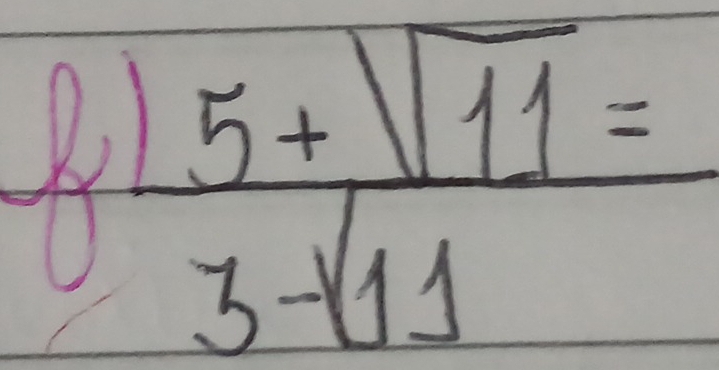 f) 5 + √11 =
3 - √11